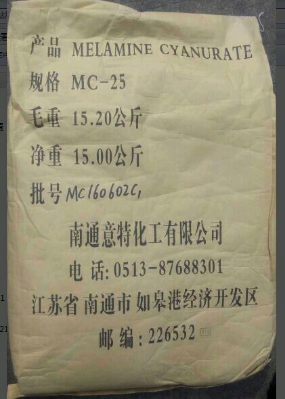 产品 MELAMINE CYANURATE
规格 MC-25
毛重 15.20公斤
净重 15.00公斤
批号 MC160602C1
南通意特化工有限公司
电话:0513-87688301
江苏省南通市如皋港经济开发区
邮编:226532